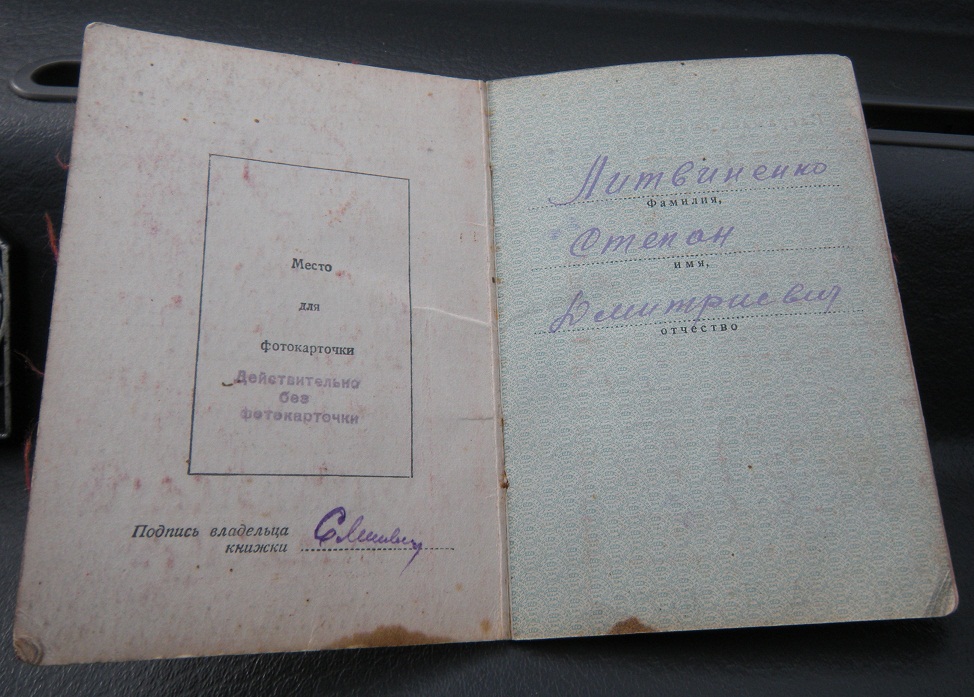 Место
для
фотокарточки
Действительно
без
фотокарточки
Подпись владельца
книжки
Литвиненко
Фамилия,
Степан
имя,
Дмитриевич
отчество